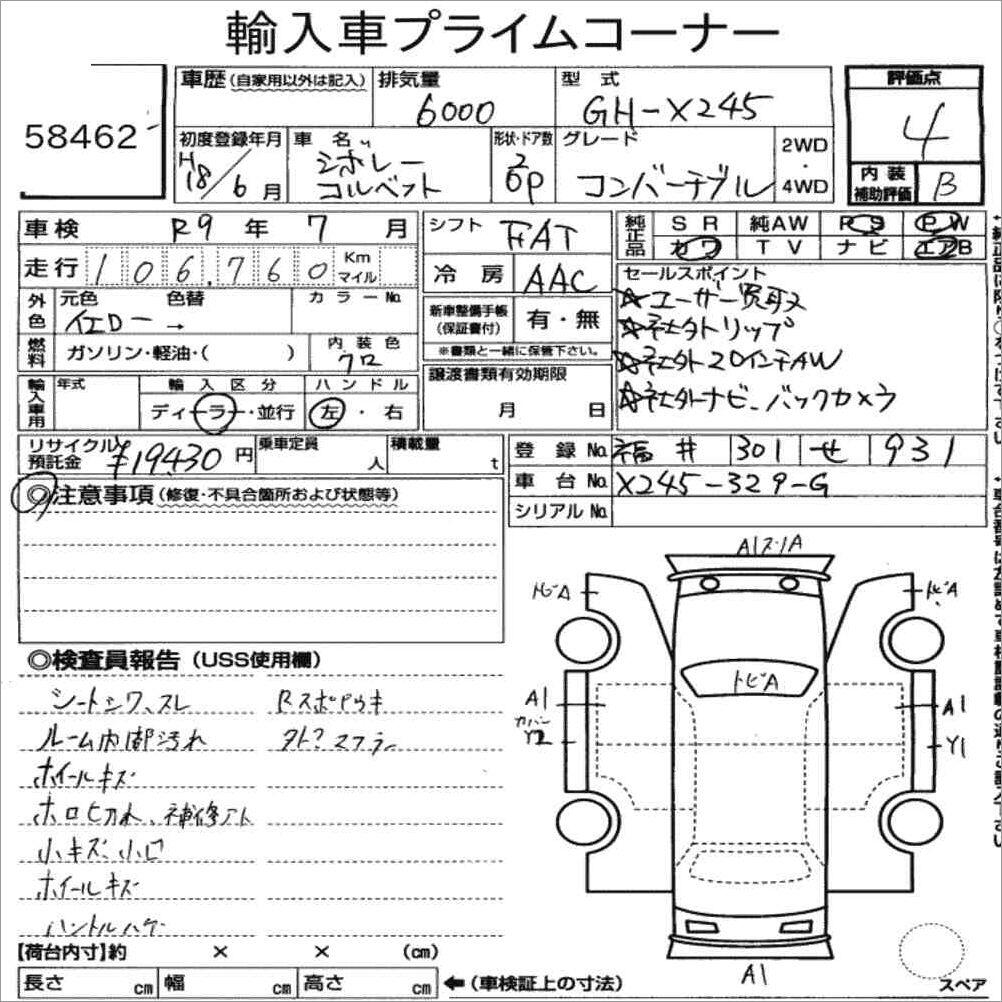 輸入車プライムコーナー
58462
車歴(自家用以外は記入) 排気量 型式 評価点
6000 GH-X245 4
初度登録年月 車名 形状・ドア数 グレード 2WD・4WD 内装補助評価 B
H18/6月 シボレー コルベット 2 OP コンバーチブル
車検 R9年7月 シフト FAT 純正品 SR 純AW PS PW
走行 106,760 Km マイル 冷房 AAC カワ TV ナビ エアB
外色 元色 色替 カラーNo. 新車整備手帳(保証書付) 有・無 セールスポイント
イエロー →
☆ユーザー買取ス
☆社外リップ
☆社外20インチAW
☆社外ナビ、バックカメラ
燃料 ガソリン・軽油・( ) 内装色 クロ ※書類と一緒に保管下さい。
輸入車用 年式 輸入区分 ハンドル 譲渡書類有効期限
ディーラー・並行 左・右 月 日
リサイクル預託金 ¥19430円 乗車定員 人 積載量 t 登録No. 福井 301 せ 931
◎注意事項(修復・不具合箇所および状態等) 車台No. X245-329-G
シリアルNo.
A1ズレA
トビA トビA
トビA
A1 A1
カバー
Y2 Y1
A1
◎検査員報告(USS使用欄)
シートシワ、スレ Rスポイラウキ
ルーム内部汚れ 外?マフラー
ホイールキズ
ホロヒワレ、補修アト
小キズ、小凹
ホイールキズ
ハンドルハゲ
【荷台内寸】約 × × (cm)
長さ cm 幅 cm 高さ cm ←(車検証上の寸法) スペア